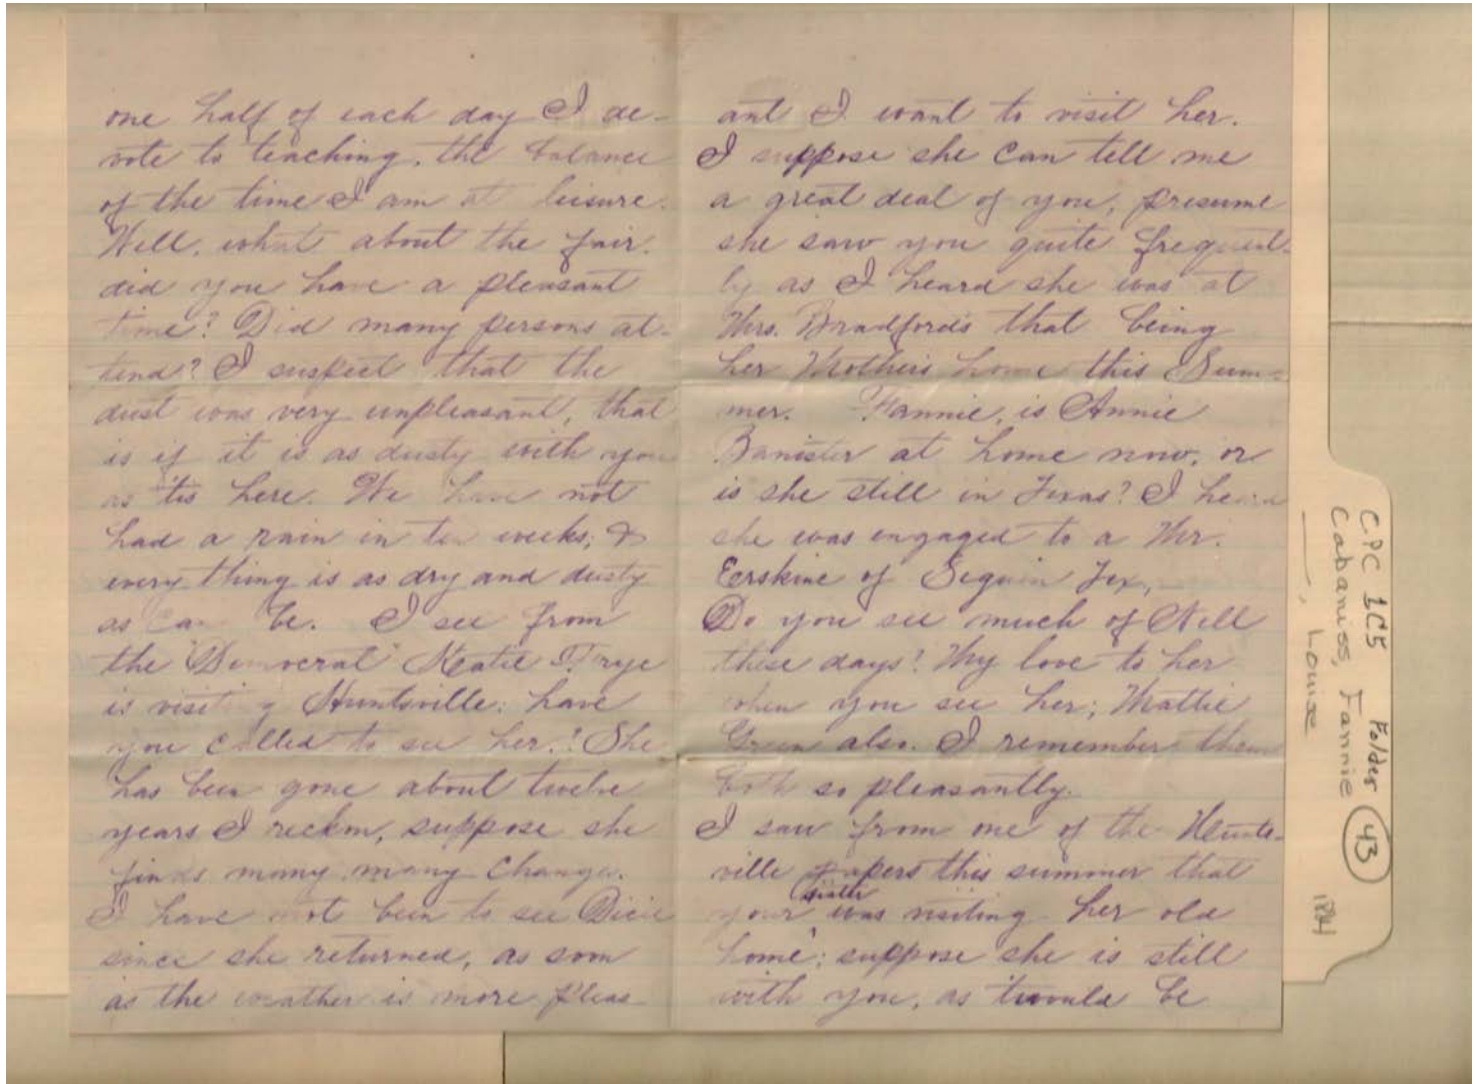 one half of each day I de-
vote to teaching, the balance
of the time I am at leisure.
Well, what about the fair.
did you have a pleasant
time? Did many persons at-
tend? I suspect that the
dust was very unpleasant, that
is if it is as dusty with you
as 'tis here. We have not
had a rain in ten weeks, &
every thing is as dry and dusty
as can be. I see from
the "Democrat" Katie Frye
is visiting Huntsville; have
you called to see her? She
has been gone about twelve
years I reckon, suppose she
finds many, many changes.
I have not been to see Dicie
since she returned, as soon
as the weather is more pleas
ant I want to visit her.
I suppose she can tell me
a great deal of you, presume
she saw you quite frequent-
ly as I heard she was at
Mrs. Bradford's that being
her Mother's home this Sum-
mer. Fannie, is Annie
Banister at home now, or
is she still in Texas? I heard
she was engaged to a Mr.
Eerskine of Seguin Tex,
Do you see much of Nell
these days? My love to her
when you see her; Mattie
Green also. I remember them
both so pleasantly.
I saw from one of the Hunts-
ville papers this summer that
your sister was visiting her old
home; suppose she is still
with you, as twould be
C.PC 1C5 Folder 43 1884
Cabaniss, Fannie
——, Louise